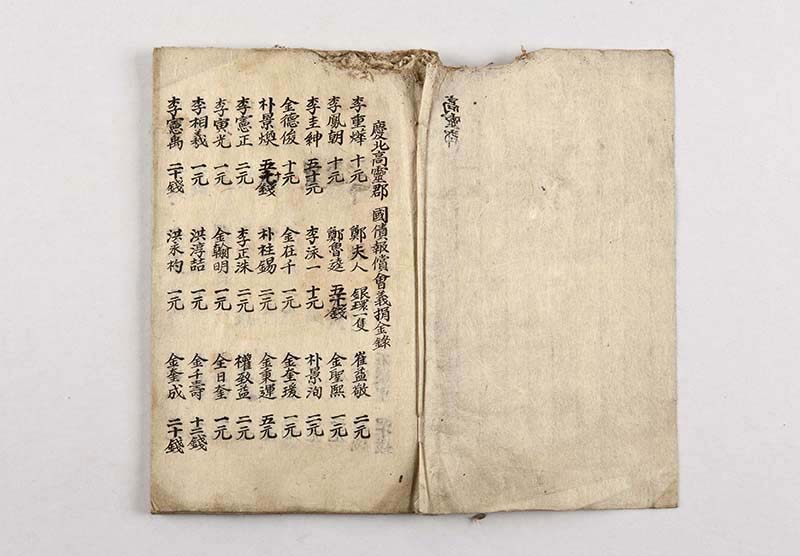 高靈郡
慶北高靈郡 國債報償會義捐金錄
李重燁 十元 鄭夫人 銀環一隻 崔益敬 二元
李鳳朝 十元 鄭魯達 五十錢 金聖熙 一元
李圭紳 五十元 李泳一 十元 朴景洵 二元
金德俊 十元 金在千 一元 金奎瑗 一元
朴景煥 錢 朴柱錫 二元 金秉運 五元
李憲正 二元 李正洙 二元 權致益 二元
李寅光 一元 金翰明 一元 全日奎 一元
李相羲 一元 洪淳喆 一元 金千壽 十二錢
李憲禹 二十錢 洪永杓 一元 金奎成 二十錢